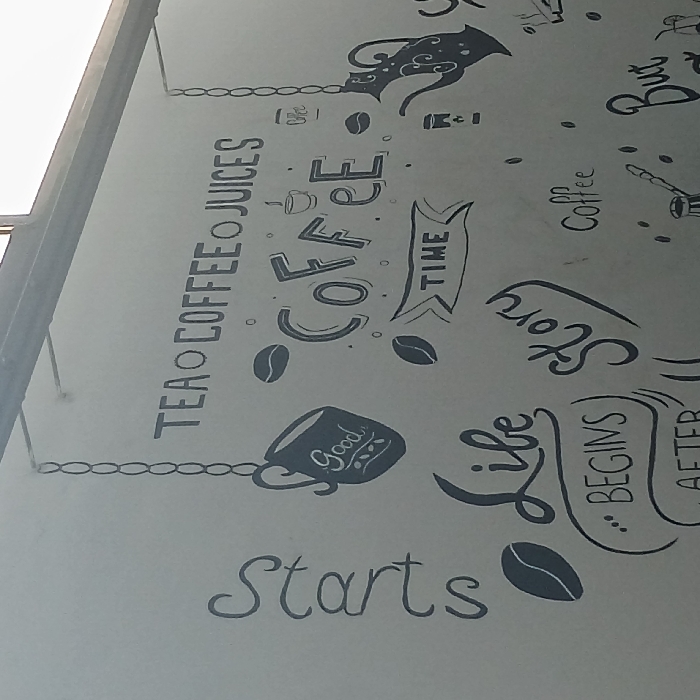 TEA o COFFEE o JUICES
Coffee
COFFEE
TIME
Good
Starts
Life
Story
...BEGINS
AFTER
Coffee
But